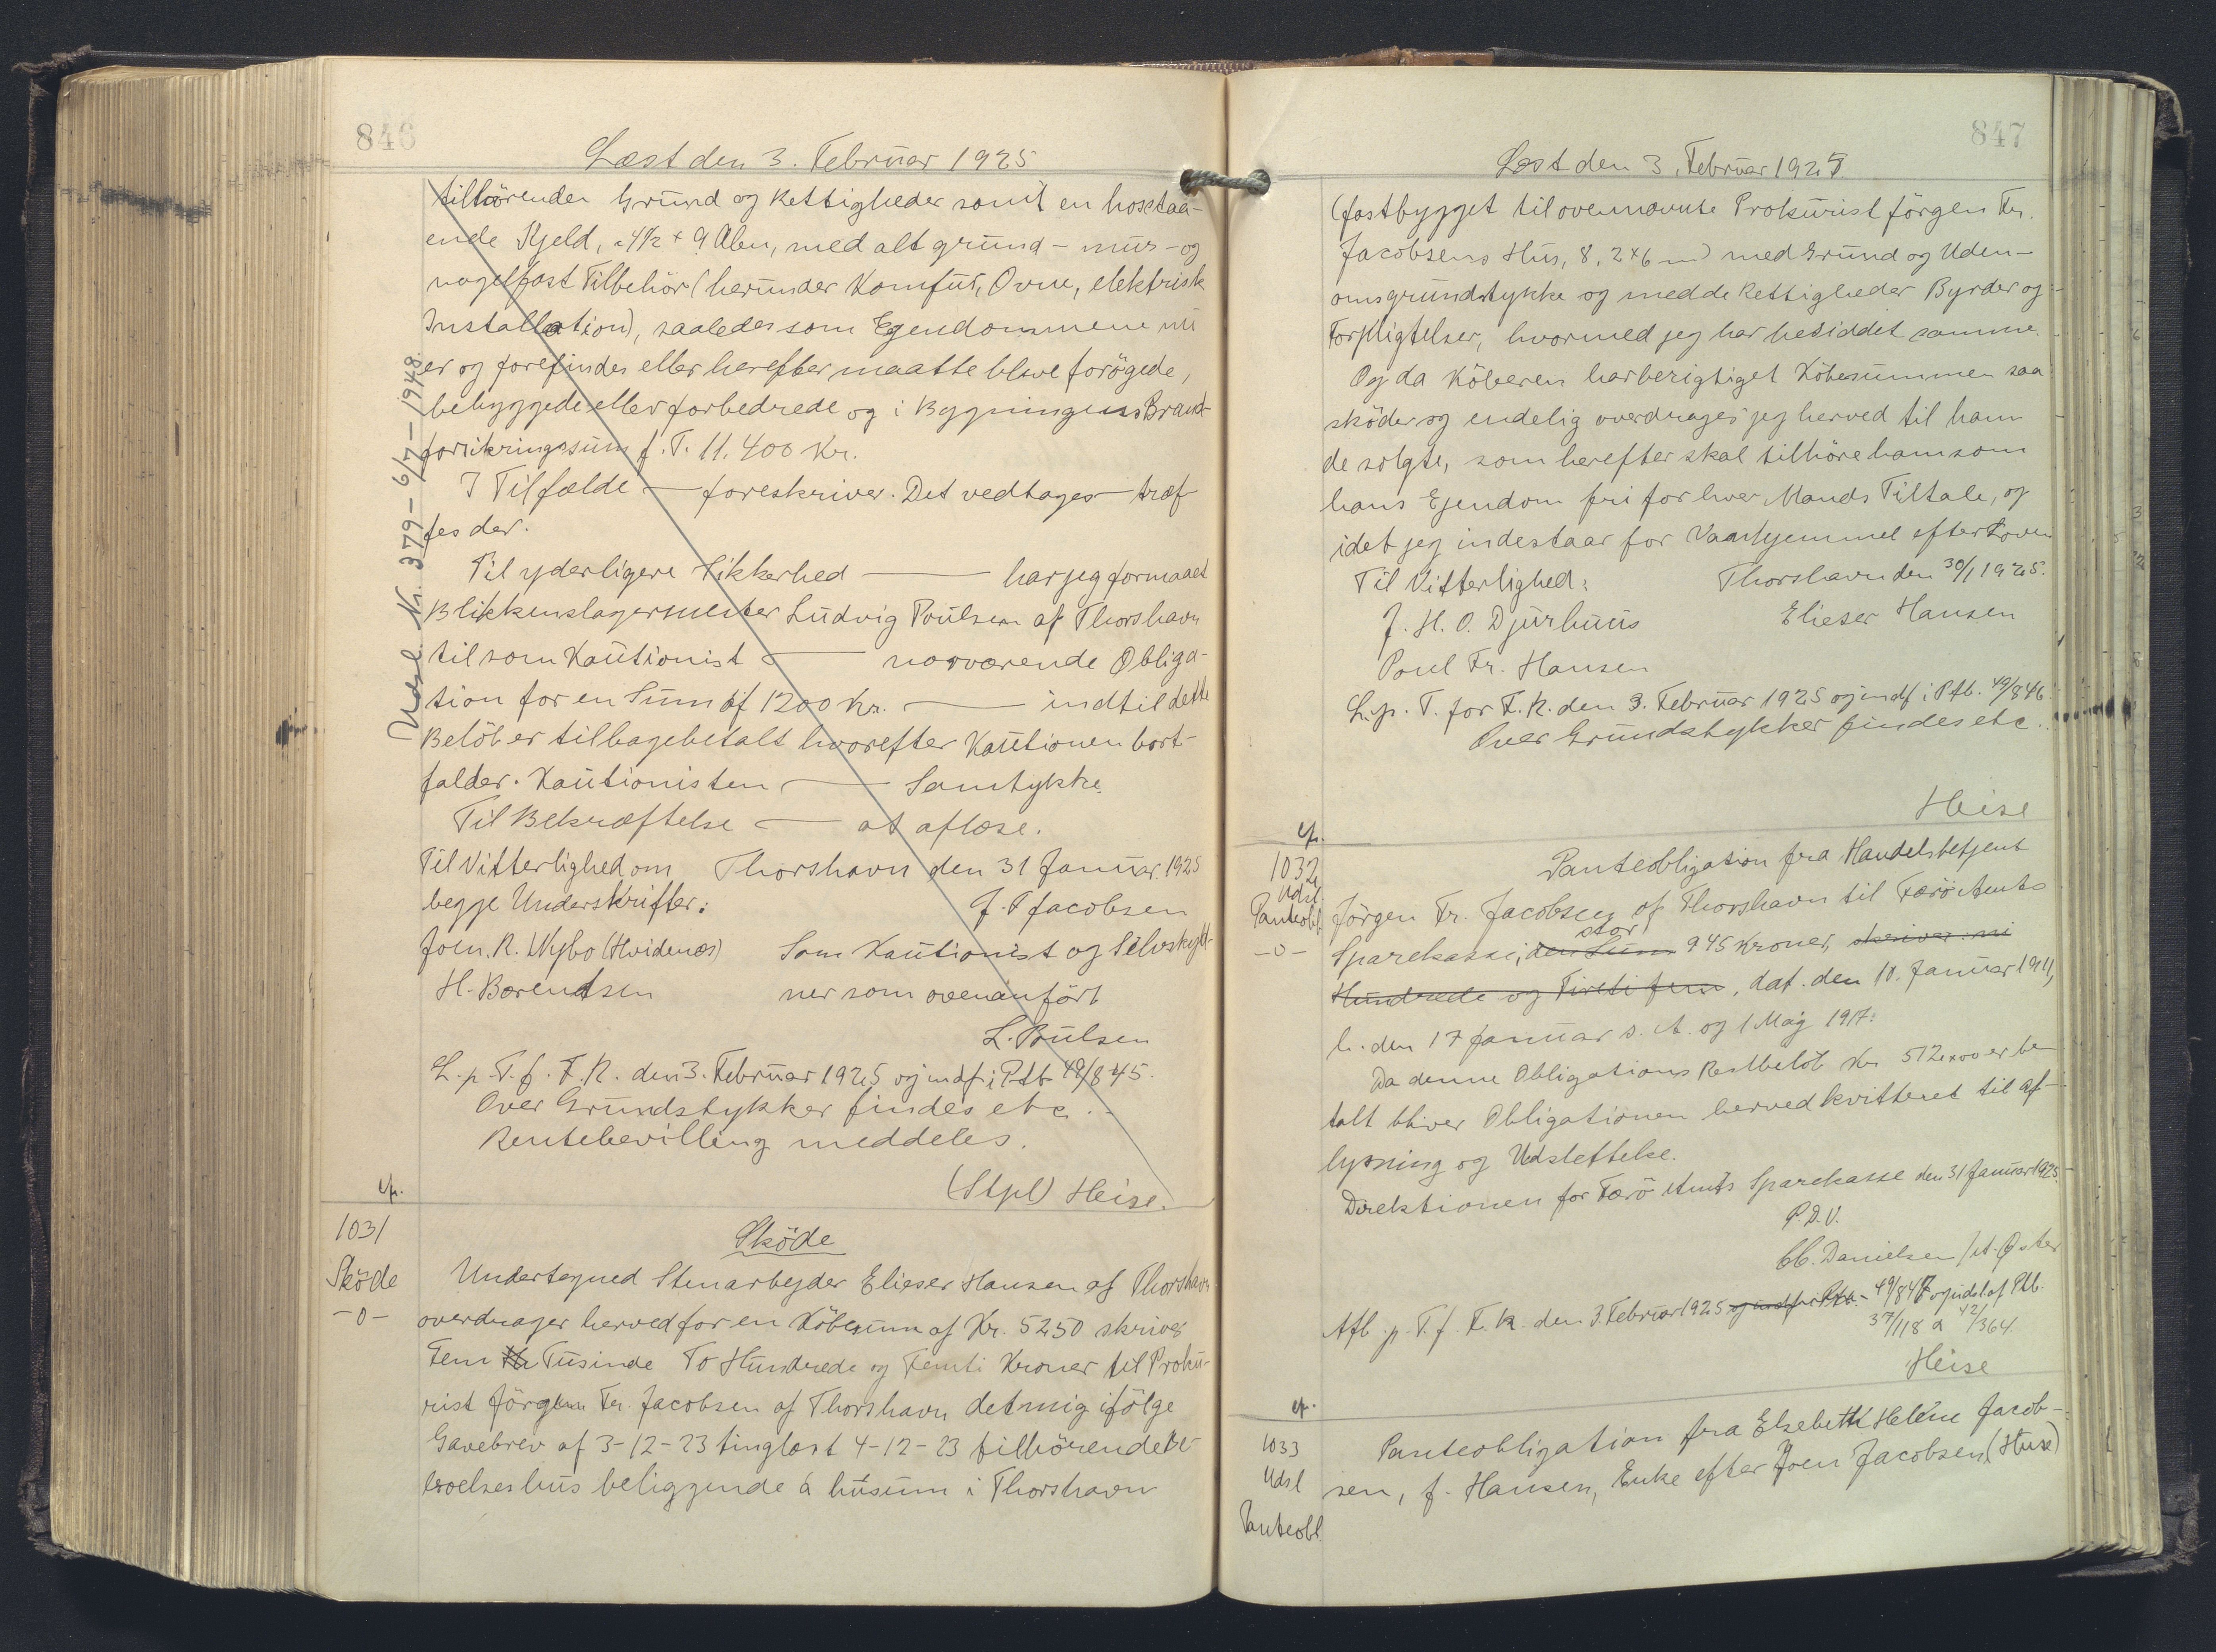 846
Læst den 3. Februar 1925
tilhörender Grund og Rettigheder samt en hosstaa-
ende Kjeld, 4 1/2 + 9 Alen, med alt grund- mur- og
nagelfast Tilbehör (herunder Komfur, Ovne, elektrisk
Installation), saaledes som Ejendommene nu
er og forefindes eller herefter maatte blive forögede,
bebyggede eller forbedrede og i Bygningens Brand-
forsikringssum f. T. 11.400 Kr.
I Tilfælde — foreskriver. Det vedtages — træf-
fes der.
Til yderligere Sikkerhed — har jeg formaaet
Blikkenslagermester Ludvig Poulsen af Thorshavn
til som Kautionist — nærværende Obliga-
tion for en Sum af 1200 Kr. — indtil dette
Belöb er tilbagebetalt hvorefter Kautionen bort-
falder. Kautionisten — Samtykke.
Til Bekræftelse — at aflæse.
Til Vitterlighed om Thorshavn den 31 Januar 1925
begge Underskrifter: J. P Jacobsen
Joen. R. Nybo (Hvidenæs) Som Kautionist og Selvskyld-
H. Børentsen ner som ovenanfört
L. Poulsen
L. p. T. f. F. R. den 3. Februar 1925 og indf. i Ptb 49/845.
Over Grundstykker findes etc.
Rentebevilling meddeles.
(Stpl) Heise.
Udsl. Nr. 379 - 6/7 - 1948.
1031
Sköde
-0-
Sköde
Undertegned Stenarbejder Elieser Hansen af Thorshavn
overdrager herved for en Köbesum af Kr. 5250 skriver
Fem Tusinde To Hundrede og Femti Kroner til Proku-
rist Jörgen Fr. Jacobsen af Thorshavn det mig ifölge
Gavebrev af 3-12-23 tinglæst 4-12-23 tilhörende Be-
boelseshus beliggende á húsum i Thorshavn
847
Læst den 3. Februar 1925.
(fastbygget til ovennævnte Prokurist Jörgen Fr.
Jacobsens Hus, 8,2 x 6 m) med Grund og Uden-
omsgrundstykke og med de Rettigheder Byrder og
Forpligtelser, hvormed jeg har besiddet samme.
Og da Köberen har berigtiget Köbesummen saa
sköder og endelig overdrager jeg herved til ham
de solgte, som herefter skal tilhöre ham som
hans Ejendom fri for hver Mands Tiltale, og
idet jeg indestaar for Vanhjemmel efter Loven
Til Vitterlighed: Thorshavn den 30/1 1925.
J. H. O. Djurhuus Elieser Hansen
Poul Fr. Hansen
L. p. T. for F. R. den 3. Februar 1925 og indf i Ptb. 49/846.
Over Grundstykker findes etc.
Heise
1032
Udsl
Panteobl
-0-
Panteobligation fra Handelsbetjent
Jörgen Fr. Jacobsen af Thorshavn til Færö Amts
Sparekasse, den Sum stor 945 Kroner, skriver ni
Hundrede og Fireti fem, dat. den 10. Januar 1911,
l. den 17 Januar s. A. og 1 Maj 1917.
Da denne Obligations Restbelöb Kr 512 er be-
talt bliver Obligationen herved kvitteret til af-
lysning og Udslettelse.
Direktionen for Færö Amts Sparekasse den 31 Januar 1925.
P.D.V.
C.C. Danielsen / A. Öster
Afl. p. T. f. F. R. den 3. Februar 1925 og indf i Ptb. 49/847 og udsl. af Ptb.
37/118 a 42/364.
Heise
1033
Udsl
Panteobl.
Panteobligation fra Elsebeth Helene Jacob-
sen, f. Hansen, Enke efter Joen Jacobsen (Huse)